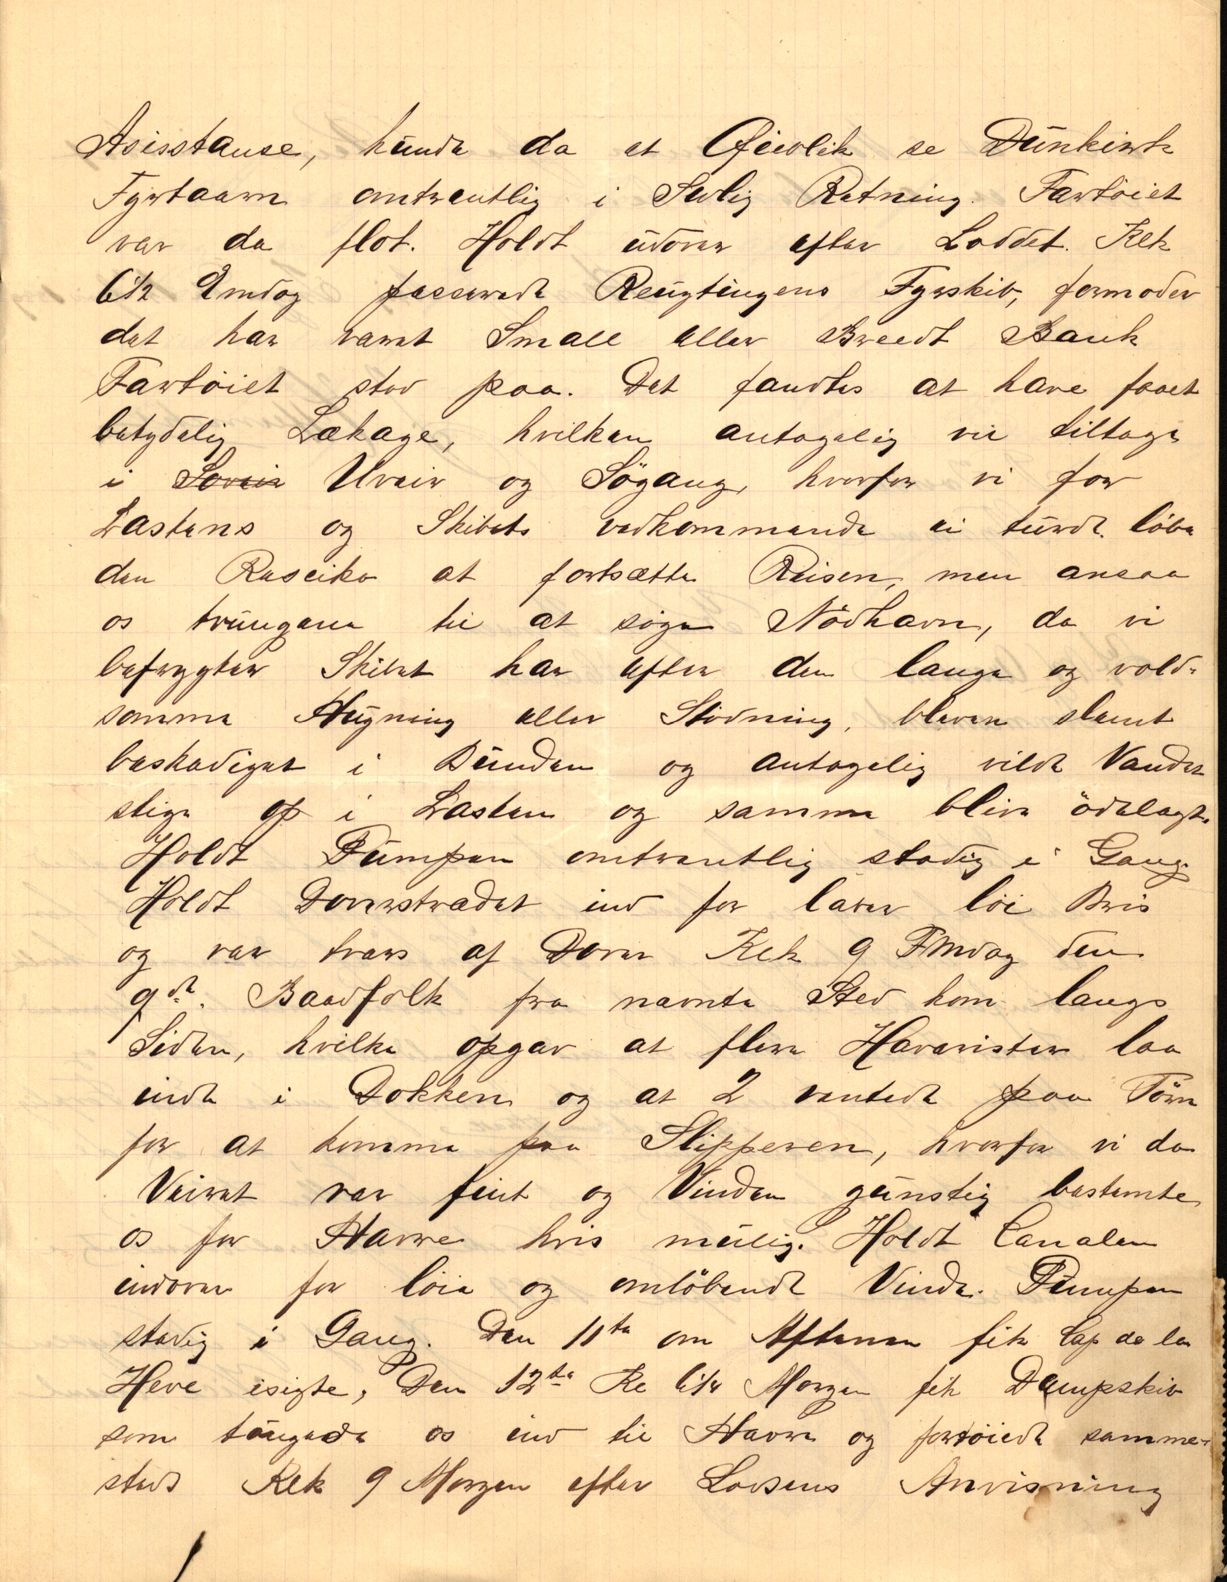 Asisstanse, kunde da et Øieblik se Dünkirk
Fyrtaarn omtrentlig i Sydlig Retning. Fartöiet
var da flot. Holdt udover efter Loddet. Klk
6½ Emdag passerede Reugtingens Fyrskib, formoder
det har været Small eller Breedt Bank
Fartöiet stod paa. Det fandtes at have faaet
betydelig Lækage, hvilken antagelig vil tiltage
i Uveir og Sögang, hvorfor vi for
Lastens og Skibets vedkommende ei turde löbe
den Raseiko at fortsætte Reisen, men ansaa
os tvungene til at söge Nödhavn, da vi
befrygter Skibet har efter den lange og vold-
somme Hugning eller Stödning, bleven slemt
beskadiget i Bunden og antagelig vilde Vandet
stige op i Lasten og samme blive ödelagt.
Holdt Pumpen omtrentlig stadig i Gang.
Holdt Doverstrædet ind for laber löi Bris
og var tvers af Dover Klk 9 Fmdag den
9de. Baadfolk fra nævnte Sted kom langs
Siden, hvilke opgav at flere Havarister laa
inde i Dokken og at 2 ventede paa Törn
for at komme paa Slipperen, hvorfor vi da
Veiret var fint og Vinden günstig bestemte
os for Havre hvis mulig. Holdt Canalen
indover for löie og omlöbende Vinde. Pumpen
stadig i Gang. Den 11te om Aftenen fik Cap de la
Heve isigte, Den 12te Kl 6¼ Morgen fik Dampskib
som tougede os ind til Havre og fortöiede samme-
steds Klk 9 Morgen efter Lodsens Anvisning